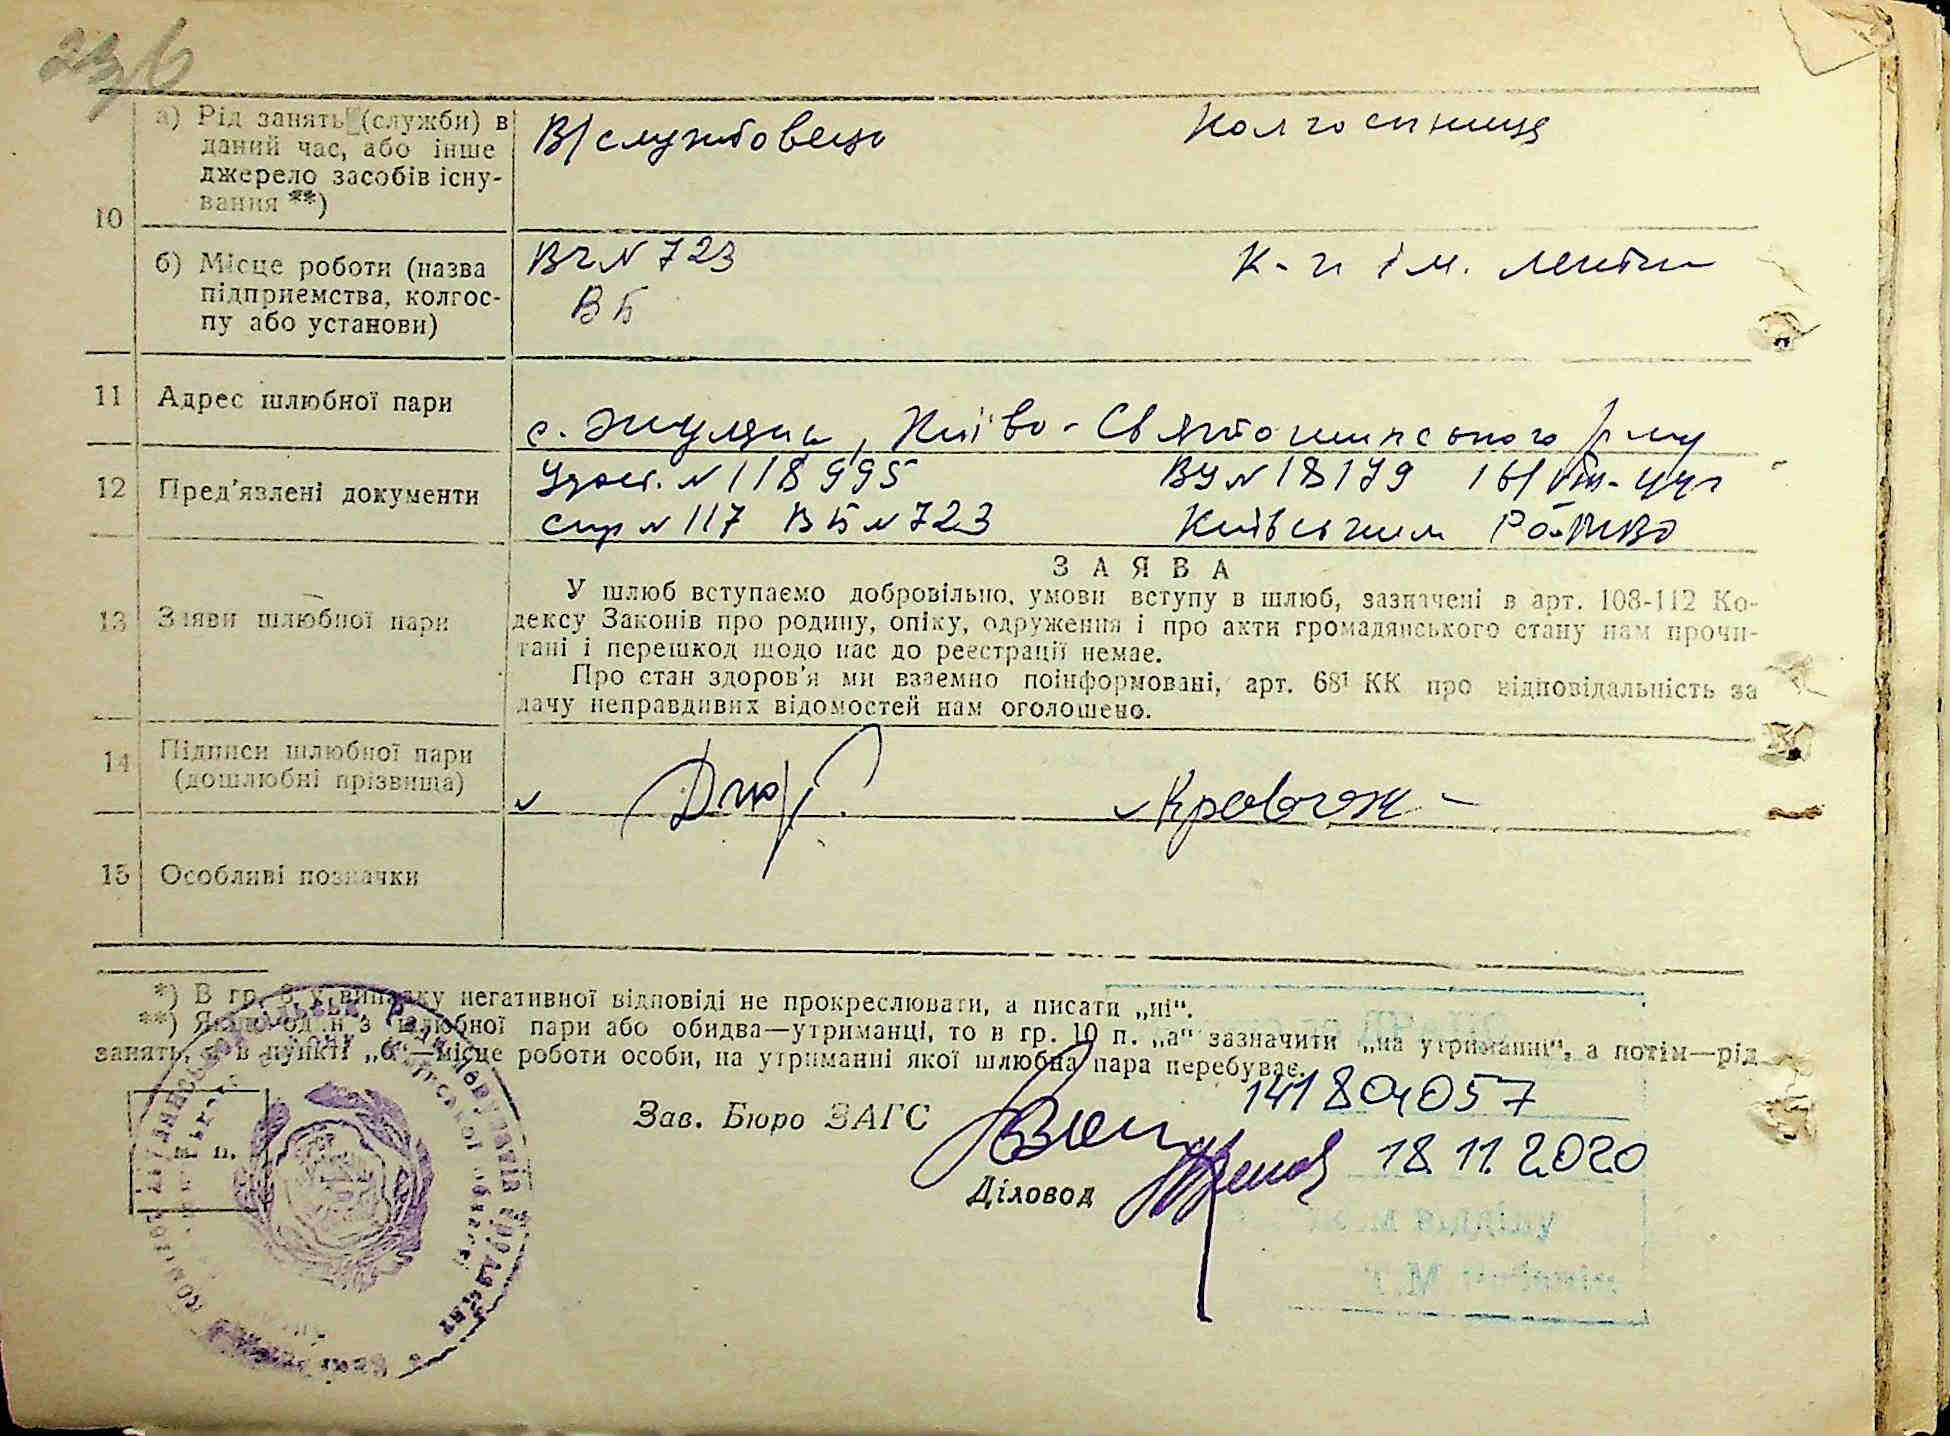 10
а) Рід занять (служби) в
даний час, або інше
джерело засобів існу-
вання **)
В/службовець
Колгоспниця
б) Місце роботи (назва
підприємства, колгос-
пу або установи)
ВЧ N 723
ВБ
К-п ім. Леніна
11 Адрес шлюбної пари
с. Жуляни, Києво-Святошинського р-ну
12 Пред'явлені документи
Удост. N 118995
спр N 117 ВБ N 723
N 18179
Київським
13 Заяви шлюбної пари
ЗАЯВА
У шлюб вступаємо добровільно, умови вступу в шлюб, зазначені в арт. 108-112 Ко-
дексу Законів про родину, опіку, одруження і про акти громадянського стану нам прочи-
тані і перешкод щодо нас до реєстрації немає.
Про стан здоров'я ми взаємно поінформовані, арт. 68¹ КК про відповідальність за
дачу неправдивих відомостей нам оголошено.
14 Підписи шлюбної пари
(дошлюбні прізвища)
15 Особливі позначки
*) В гр. 8 у випадку негативної відповіді не прокреслювати, а писати „ні".
**) Якщо один з шлюбної пари або обидва—утриманці, то в гр. 10 п. „а" зазначити „на утриманні", а потім—рід
занять, а в пункті „б"—місце роботи особи, на утриманні якої шлюбна пара перебуває.
м. п.
Зав. Бюро ЗАГС
Діловод
18.11.2020
відділу